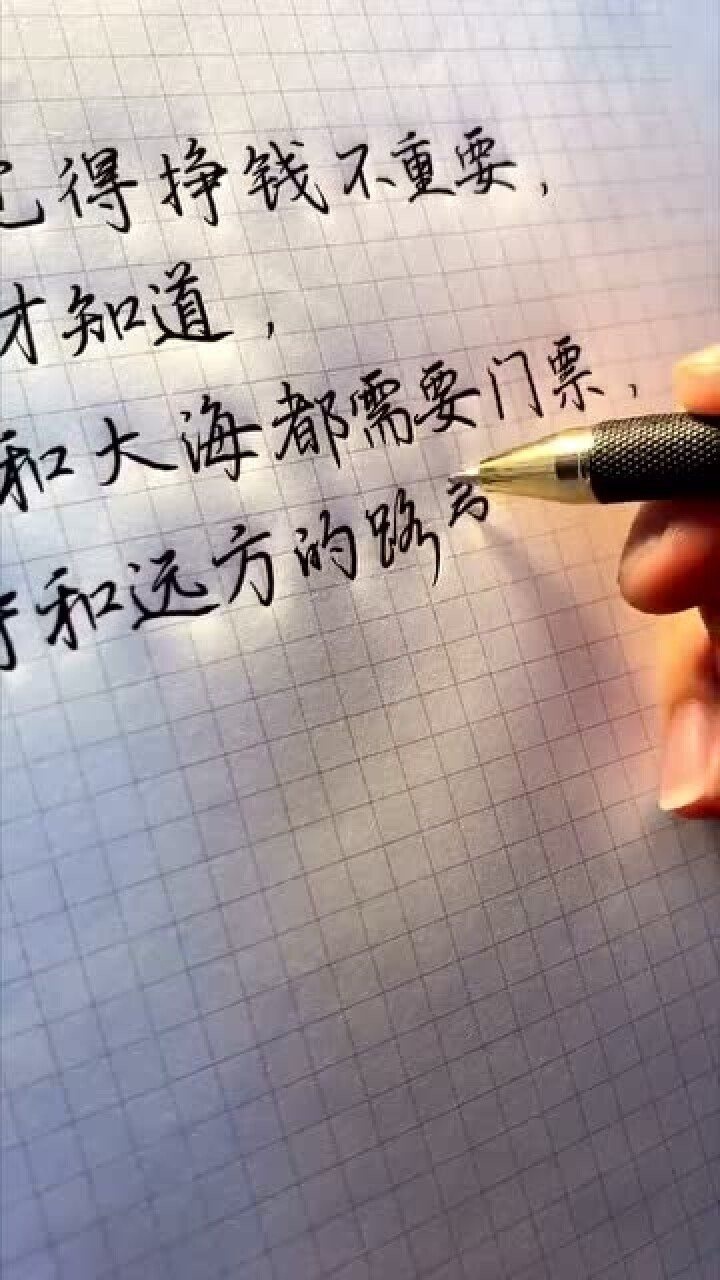 得挣钱不重要，
才知道，
和大海都需要门票，
和远方的路